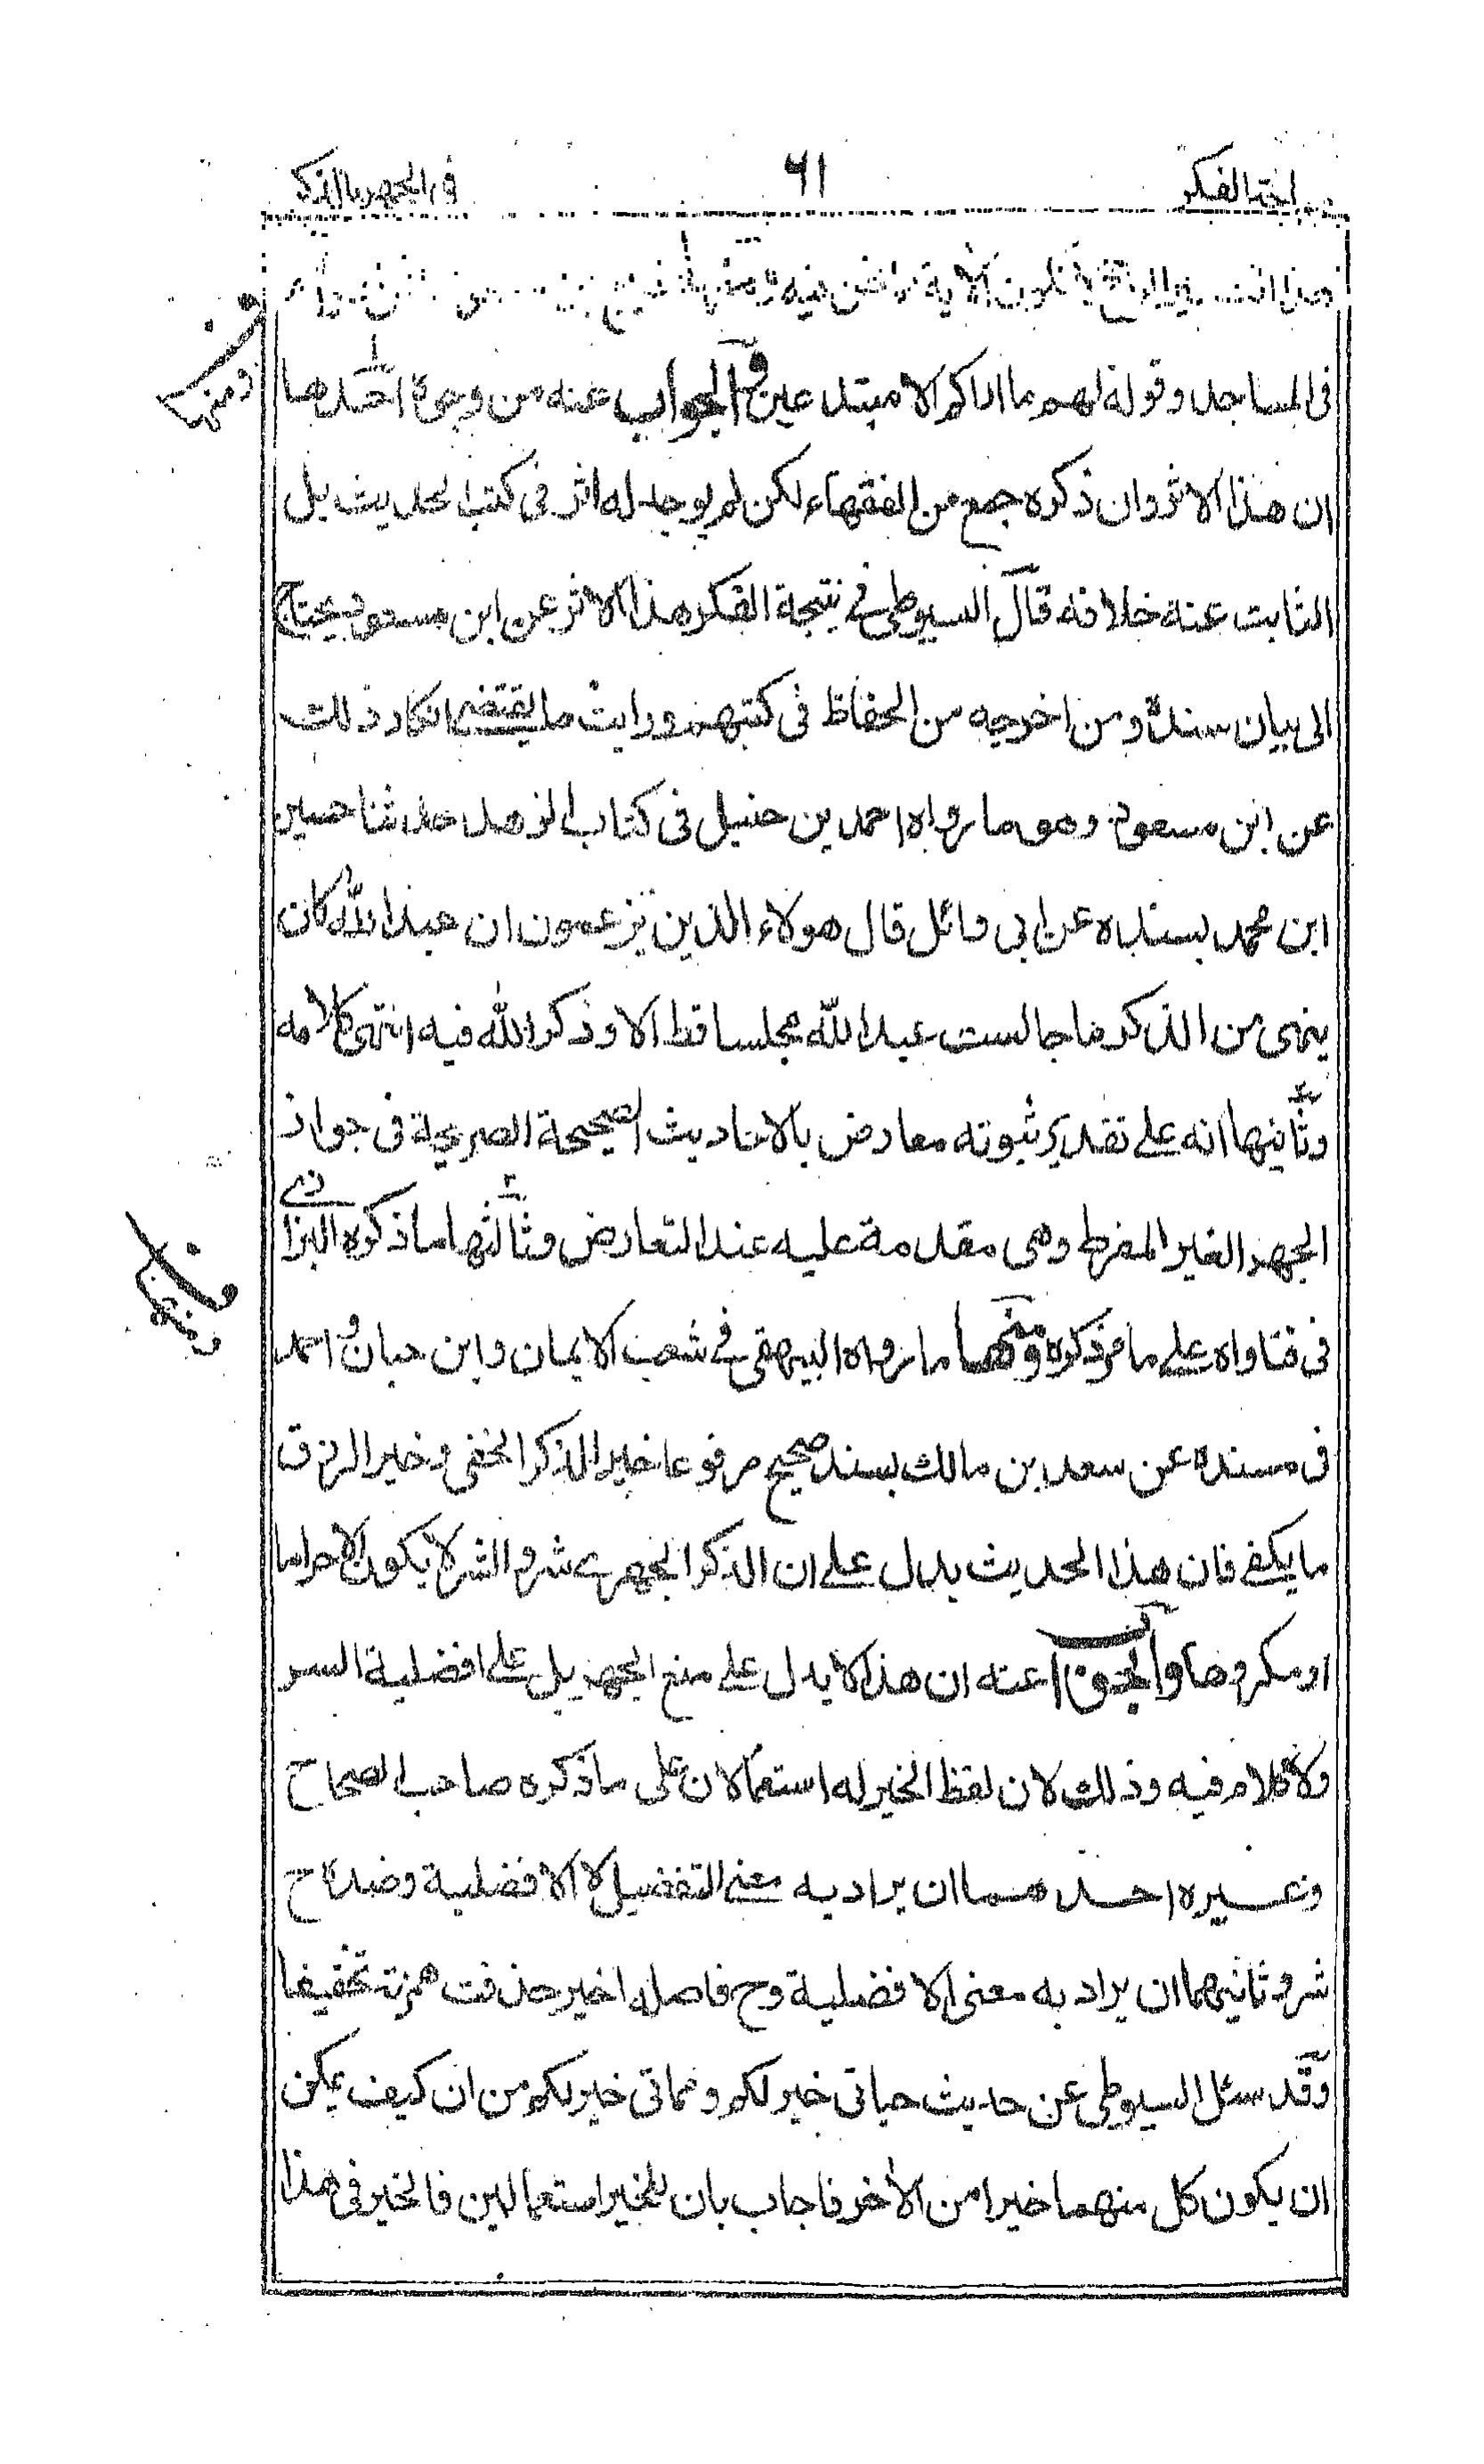 الفكر ٦١ فى الجهر بالذكر
فى المساجد وقوله لهم ما اراكم الا مبتدعين والجواب عنه من وجوه احدها
ومنها
ان هذا الاثر وان ذكره جمع من الفقهاء لكن لم يوجد له اثر فى كتب الحديث بل
الثابت عنه خلافه قال السيوطى فے نتيجة الفكر هذا الاثر عن ابن مسعود يحتاج
الى بيان سنده ومن اخرجه من الحفاظ فى كتبهم ورايت ما يقتضى انكار ذلك
عن ابن مسعود وهو ما رواه احمد بن حنبل فى كتاب الزهد حدثنا حسين
ابن محمد بسنده عن ابى وائل قال هولاء الذين يزعمون ان عبد الله كان
ينهى من الذكر ما جالست عبد الله مجلسا قط الا وذكر الله فيه انتهى كلامه
وثانيها انه علے تقدير ثبوته معارض بالاحاديث الصحيحة الصريحة فى جواز
الجهر الغير المفرط وهى مقدمة عليه عند التعارض وثالثها ما ذكره البزازى
ومنها
فى فتاواه علے ما مر ذكره ومنها ما رواه البيهقى فے شعب الايمان وابن حبان واحمد
فى مسنده عن سعد بن مالك بسند صحيح مرفوعا خير الذكر الخفى وخير الرزق
ما يكفے فان هذا الحديث يدل علے ان الذكر الجهرے شر والشر لا يكون الا حراما
او مكروها والجواب عنه ان هذا لا يدل علے منع الجهر بل علے افضلية السر
ولا كلام فيه وذلك لان لفظ الخير له استعمالان على ما ذكره صاحب الصحاح
وغيره احدهما ان يراد به معنے التفضيل لا الافضلية وضده ح
شر وثانيهما ان يراد به معنى الافضلية وح فاصله اخير حذفت همزته تخفيفا
وقد سئل السيوطى عن حديث حياتى خير لكم ومماتى خير لكم من ان كيف يمكن
ان يكون كل منهما خيرا من الآخر فاجاب بان للخير استعمالين فالخير فى هذا